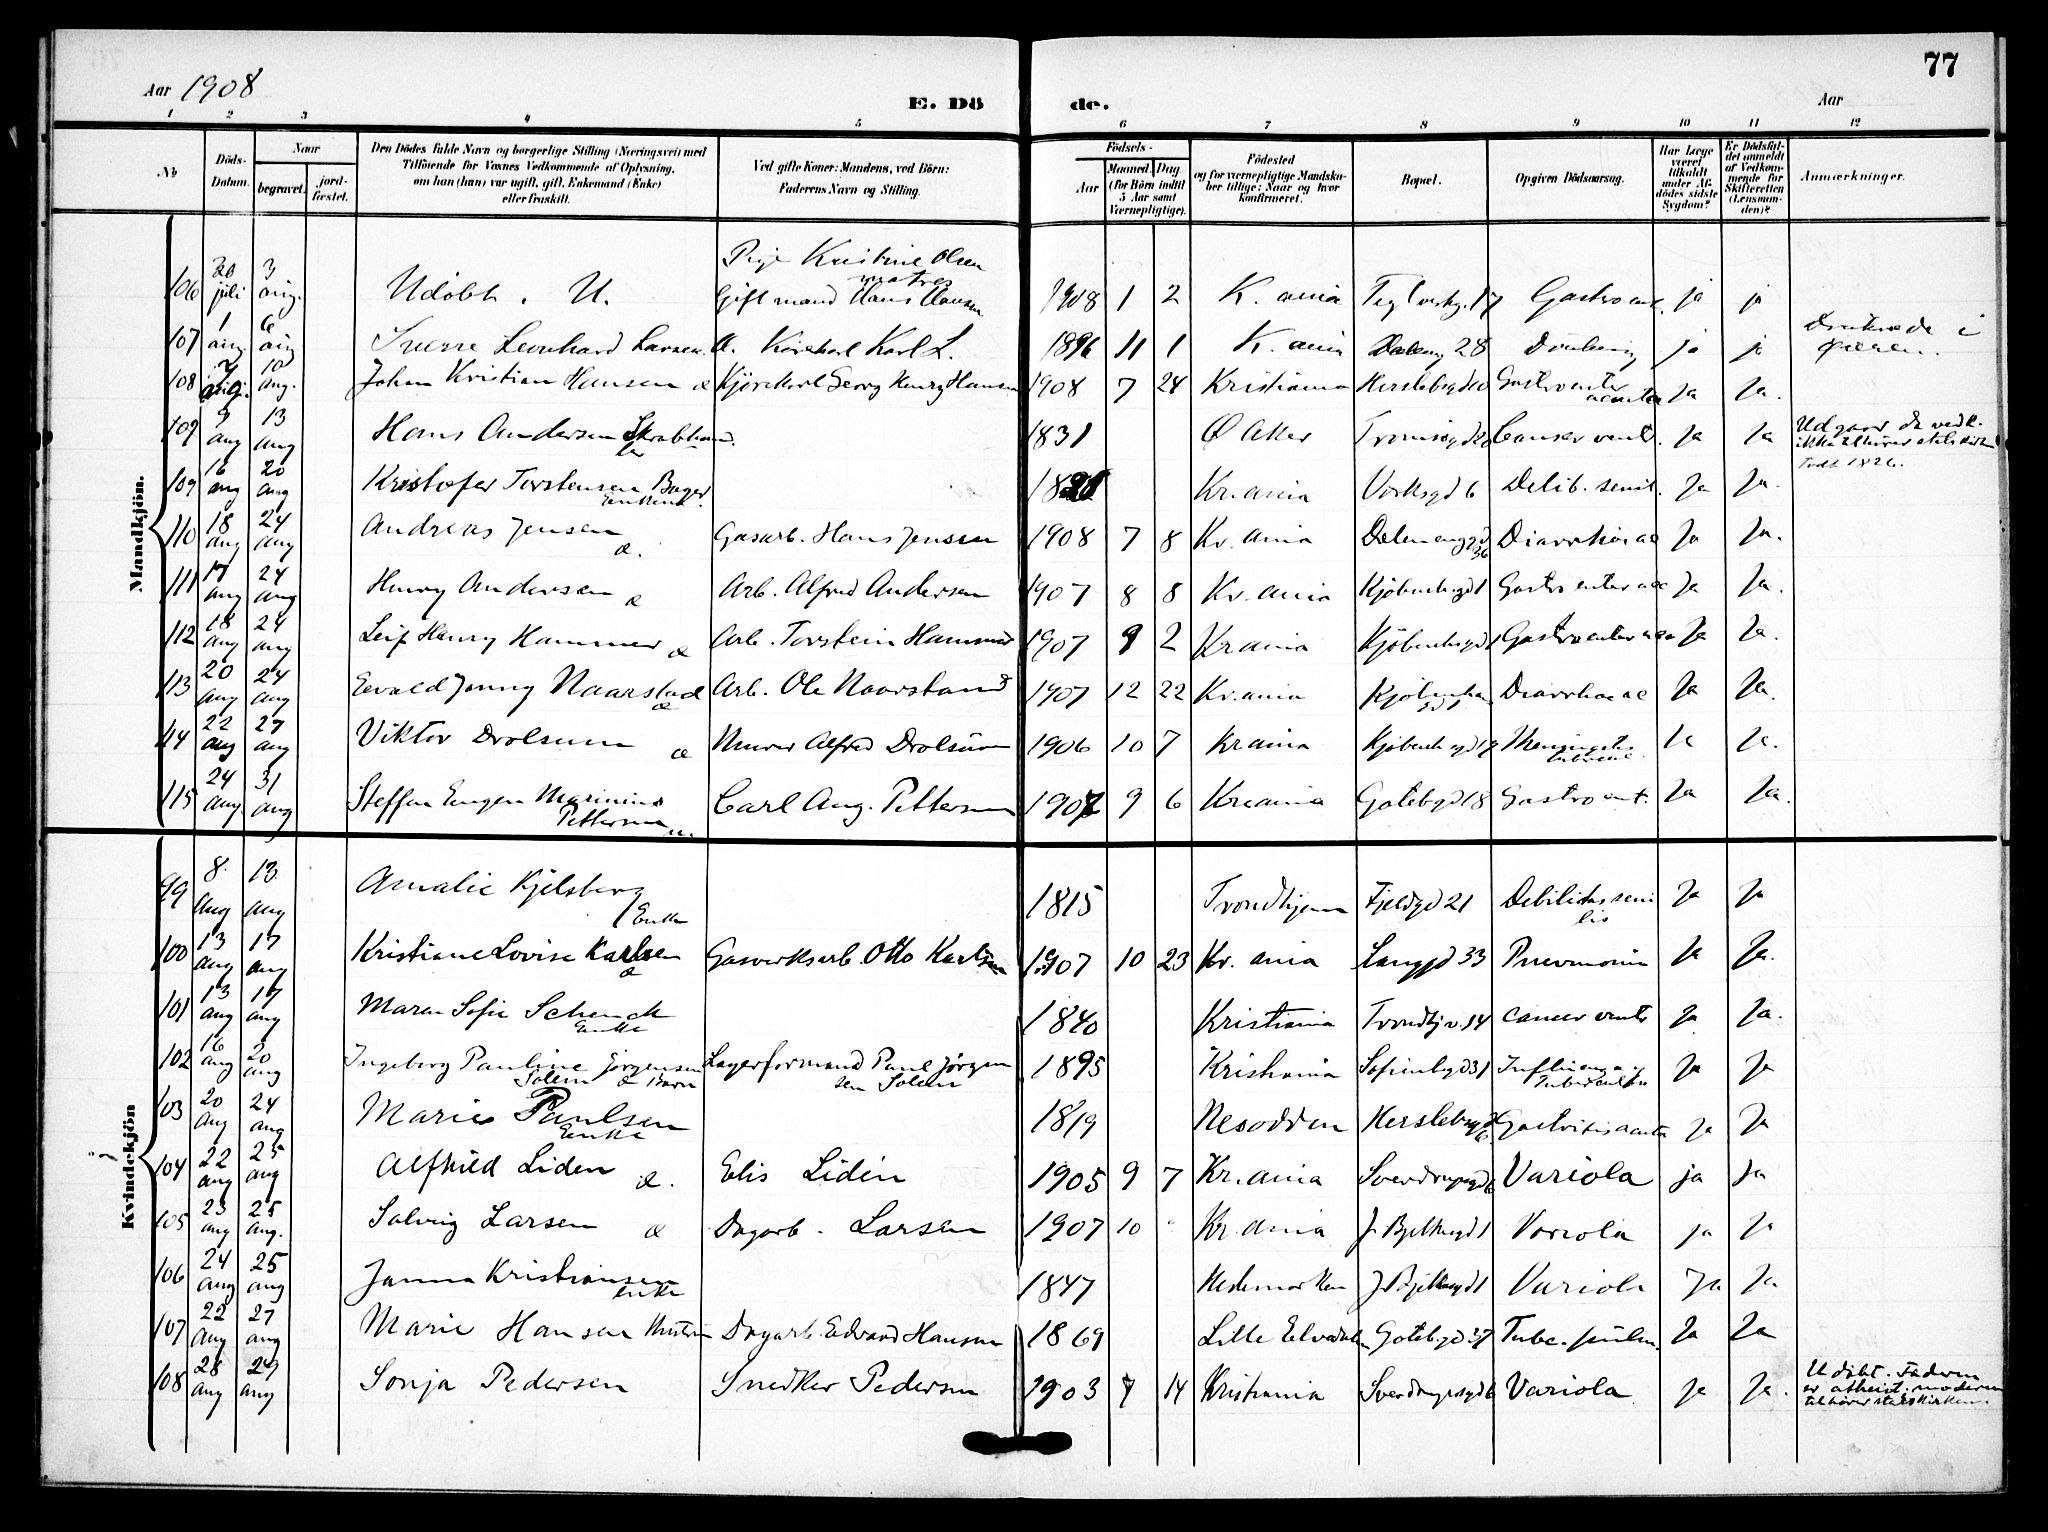 77
Aar 1908
E. Dö
de.
Aar
1 2 3 4 5 6 7 8 9 10 11 12
No
Döds-Datum.
Naar
begravet.
jord-fæstet.
Den Dödes fulde Navn og borgerlige Stilling (Næringsvei) med
Tilföiende for Voxnes Vedkommende af Oplysning,
om han (hun) var ugift, gift, Enkemand (Enke)
eller fraskilt.
Ved gifte Koner: Mandens, ved Börn:
Faderens Navn og Stilling.
Födsels-
Aar
Maaned. Dag
(for Börn indtil
5 Aar samt
Værnepligtige).
Födested
og for værnepligtige Mandska-
ber tillige: Naar og hvor
konfirmeret.
Bopæl.
Opgiven Dödsaarsag.
Har Læge
været
tilkaldt
under Af-
dödes sidste
Sygdom?
Er Dödsfal-
det anmeldt
af Vedkom-
mende for
Skifteretten
(Lensman-
den)?
Anmærkninger.
Mandkjön.
106 30 juli 3 aug. Udöbt. U. Pige Kristine Olsen
Gift mand Hans Hansen 1908 1 2 K.ania 17 Gastroent. ja ja
107 1 aug. 6 aug Sverre Leonhard Larsen. Æ. Karl L. 1896 11 1 K.ania 28 Drukning ja ja Druknede i
108 10 aug. Johan Kristian Hansen æ Kjörekarl Georg Henry Hansen 1908 7 24 Kristiania Herslebsgd 10 Gastroenter acuta Ja Ja.
109 9 aug 13 aug Hans Andersen 1831 Ø Aker Tromsögd 20 Cancer ventr. Ja Ja Udgaar da vedk.
ikke tilhörer statskirken
Født 1826.
109 16 aug 20 aug Kristofer Torstensen Bager
Enkem. Kr.ania 6 Debil. senil. Ja Ja.
110 18 aug 24 aug Andreas Jensen æ. Gasarb. Hans Jensen 1908 7 8 Kr.ania Dælenenggd 36 Diarrhoea ac Ja Ja.
111 17 aug 24 aug Henry Andersen æ Arb. Alfred Andersen 1907 8 8 Kr.ania Kjöbenhgd 1 Gastro enter ac Ja Ja.
112 18 aug 24 aug Leif Henry Hammer æ Arb. Torstein Hammer 1907 9 2 Krania Kjöbenhgd 1 Gastroenter ac Ja Ja.
113 20 aug 24 aug Evald Jonny Naarstad æ Arb. Ole Naarstad 1907 12 22 Kr.ania Kjöbenhav gd 1 Diarrhoea ac Ja Ja.
114 22 aug 27 aug Viktor Drolsum æ Murer Alfred Drolsum 1906 10 7 Krania Kjöbenhgd 12 Meningitis tubercul. Ja Ja.
115 24 aug 31 aug Steffen Eugen Marinius
Pettersen u. Carl Aug. Pettersen 1907 9 6 Krania Götebgd 18 Gastroent. Ja Ja.
Kvindekjön
99 8. aug 13. aug Amalie Kjelsberg
Enke 1815 Trondhjem Fjeldgd 21 Debilitas seni
lis Ja Ja
100 13 aug 17 aug Kristiane Lovise Karlsen æ Gasverksarb. Otto Karlsen 1907 10 23 Kr.ania Langgd 33 Pnevmoni Ja Ja.
101 13 aug 17 aug Maren Sofie Schenck
Enke 1840 Kristiania Trondhj v. 14 cancer ventr Ja Ja.
102 16 aug 20 aug Ingeborg Pauline Jörgensen
Solem æ Barn Lagerformand Paul Jörgen
sen Solem 1895 Kristiania Sofienbgd 31 Influenza og
Tuberculose Ja Ja
103 20 aug 24 aug Marie Paulsen
Enke 1819 Nesodden Herslebsgd 6 Gastritis acuta Ja Ja
104 22 aug 25 aug Alfhild Liden æ. Elis Lidén 1905 9 7 Kr.ania Sverdrupsgd 6 Variola ja ja
105 23 aug 25 aug. Solveig Larsen æ Dagarb. Larsen 1907 10 Kr.ania J. Bjelkesgd 1 Variola ja Ja
106 24 aug 25 aug Janna Kristiansen
enke 1847 Hedemarken J. Bjelkesgd 1 Variola Ja Ja
107 22 aug 27 aug Marie Hansen Hustru Dagarb. Edvard Hansen 1869 Lille Elvedalen Götebgd 37 Tube. pulm. Ja Ja
108 28 aug 29 aug Sonja Pedersen Snedker Pedersen 1903 7 14 Kristiania Sverdrupsgd 6 Variola Ja Ja. Udöbt. Faderen
er atheist. moderen
tilhörer statskirken.